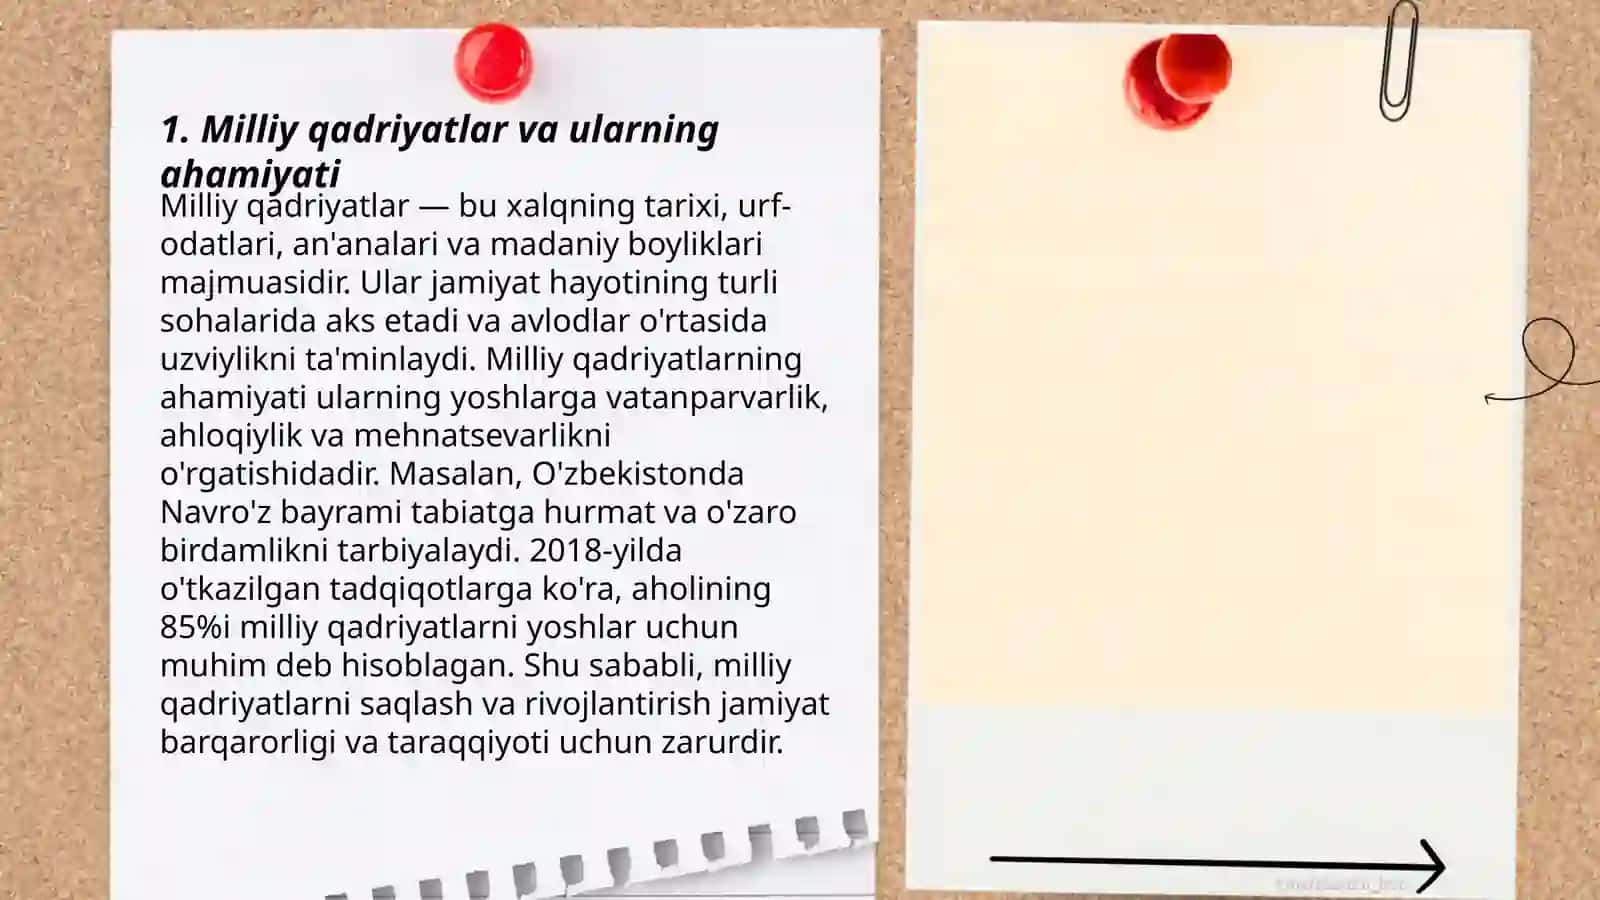 1. Milliy qadriyatlar va ularning
ahamiyati
Milliy qadriyatlar — bu xalqning tarixi, urf-
odatlari, an'analari va madaniy boyliklari
majmuasidir. Ular jamiyat hayotining turli
sohalarida aks etadi va avlodlar o'rtasida
uzviylikni ta'minlaydi. Milliy qadriyatlarning
ahamiyati ularning yoshlarga vatanparvarlik,
ahloqiylik va mehnatsevarlikni
o'rgatishidadir. Masalan, O'zbekistonda
Navro'z bayrami tabiatga hurmat va o'zaro
birdamlikni tarbiyalaydi. 2018-yilda
o'tkazilgan tadqiqotlarga ko'ra, aholining
85%i milliy qadriyatlarni yoshlar uchun
muhim deb hisoblagan. Shu sababli, milliy
qadriyatlarni saqlash va rivojlantirish jamiyat
barqarorligi va taraqqiyoti uchun zarurdir.